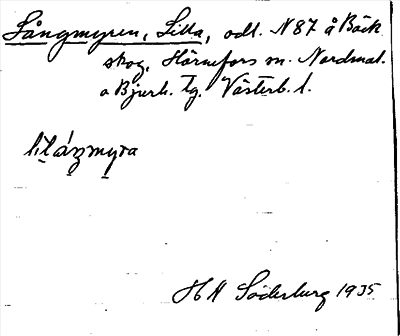 Långmyren, Lilla, odl. N 87 å Bäck
skog, Hörnefors sn. Nordmal.
o Bjurh. tg. Västerb. l.
H A Söderburg 1935